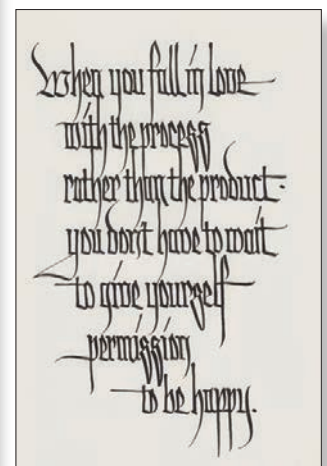 When you fall in love
with the process
rather than the product.
you don't have to wait
to give yourself
permission
to be happy.